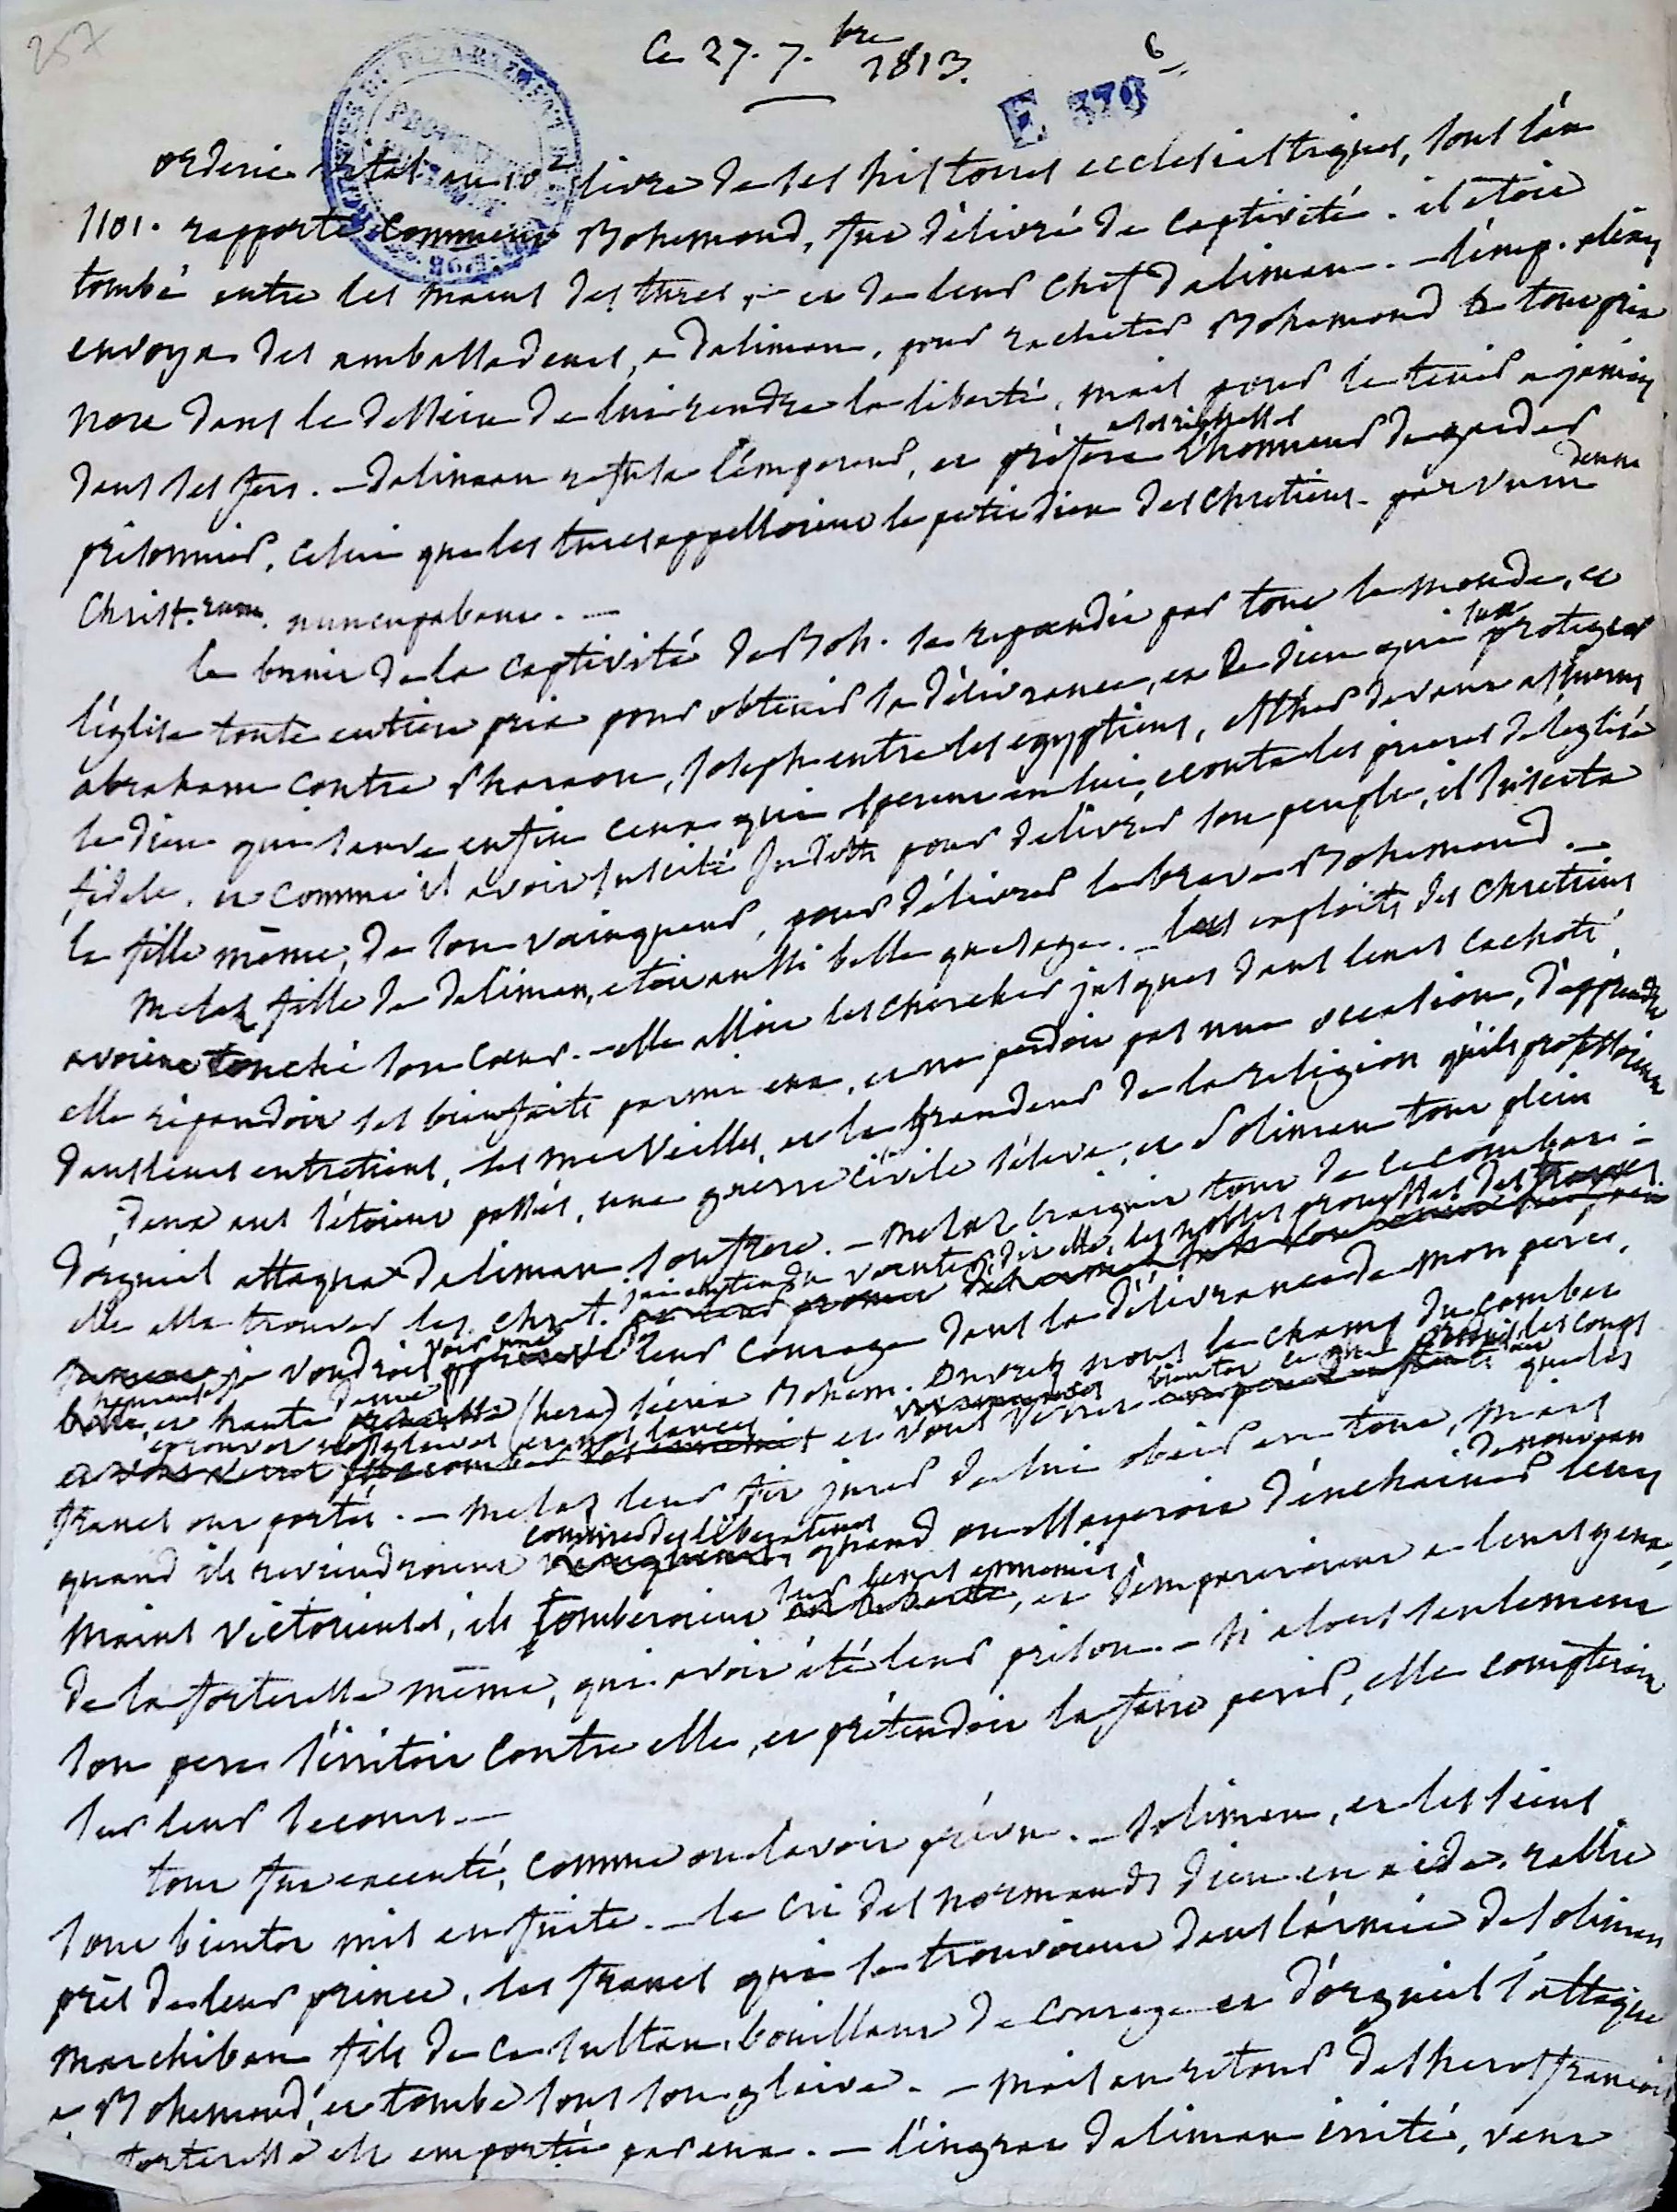 257
Ce 27. 7.bre 1813.
6
E 376
orderic vital au 10e livre de ses histoires ecclesiastiques, sous l'an
1101. rapporte comment Bohemond, fut délivré de captivité. il étoit
tombé entre les mains des turcs, et de leur chef daliman. - l'emp. alexis
envoya des ambassadeurs, a daliman, pour racheter Bohemond
non dans le dessein de lui rendre la liberté, mais pour le tenir a jamais
a ses richesses
dans ses fers. - daliman refusa l'empereur, et préféra l'honneur de garder
prisonnier, celui que les turcs appelloient le petit dieu des chretiens. parvum deum
Christ.rum nuncupabant. -
le bruit de la captivité de Boh. se repandit par tout le monde, et
l'église toute entiere pria pour obtenir sa délivrance, et le dieu qui sut proteger
abraham contre Pharaon, Joseph entre les egyptiens, esther devant assuerus
le dieu qui sauve enfin ceux qui esperent en lui, ecouta les prieres de l'eglise
fidele. et comme il avoit suscité Judith pour délivrer son peuple, il suscita
la fille même, de son vainqueur, pour délivrer le brave Bohemond. -
Melaz fille de daliman, etoit aussi belle que sage. - les exploits des chretiens
avoient touché son coeur. - elle alloit les chercher jusques dans leurs cachots,
elle répandoit ses bienfaits parmi eux, et ne perdoit pas une occasion, d'apprendre
dans leurs entretiens, les merveilles, et la grandeur de la religion qu'ils professoient
deux ans s'étoient passés, une guerre civile s'éleva, et Soliman tout plein
d'orgueil attaqua daliman son frere. - Melaz craignit tout de ce combat -
elle alla trouver les chret. j'ai entendu vanter, dit elle, les nobles prouesses des français
je voudrois voir une epreuve de leur courage dans la délivrance de mon pere.
honneste et haute dame (hera) s'écria Bohem. ouvrez nous le champ du combat
eprouver nos glaives et nos lances et vous verrez bientot les coups que les
francs ont portés. - Melaz leur fit jurer de lui obeir en tout, mais
quand ils reviendroient comme des liberateurs, quand on essayeroit d'enchainer de nouveau leurs
mains victorieuses, ils tomberoient sur leurs ennemis, et s'empareroient a leurs gens,
de la forteresse même, qui avoit été leur prison. - si alors seulement
son pere s'irritoit contre elle, et prétendoit la faire perir, elle compteroit
sur leur secours. -
tout fut executé, comme on l'avoit prévu. - Soliman, et les siens
sont bientot mis en fuite. - le cri des normands dieu en aide, rallie
près de leur prince, les francs qui se trouvoient dans l'armée de Soliman
Marchiban fils de ce sultan, bouillant de courage et d'orgueil s'attaque
a Bohemond, et tombe sous son glaive. - Mais au retour des heros françois
forteresse est emportée par eux. - l'ingrat daliman irrité, veut